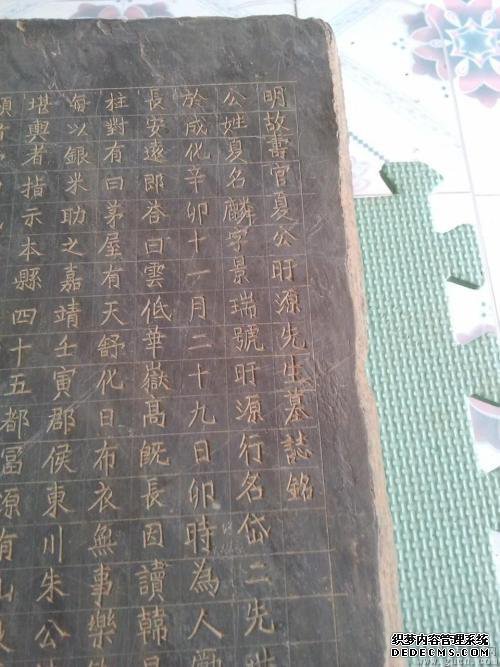 明故壽官夏公旴源先生墓誌銘
公姓夏名麟字景瑞號旴源行名岱二先
於成化辛卯十一月二十九日卯時為人
長安遠郎答曰雲低華嶽高既長因讀韓
柱對有曰茅屋有天舒化日布衣無事樂
每以銀米助之嘉靖壬寅郡侯東川朱公
堪輿者指示本縣四十五都富源有山
织梦内容管理系统
DEDECMS.COM